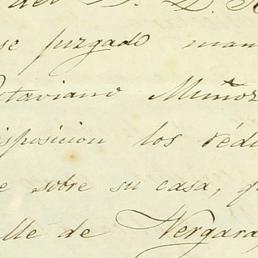 del D. D.
se juzgado man
ctaviano Muñoz
isposicion los rédi
e sobre su casa, q
lle de Vergara